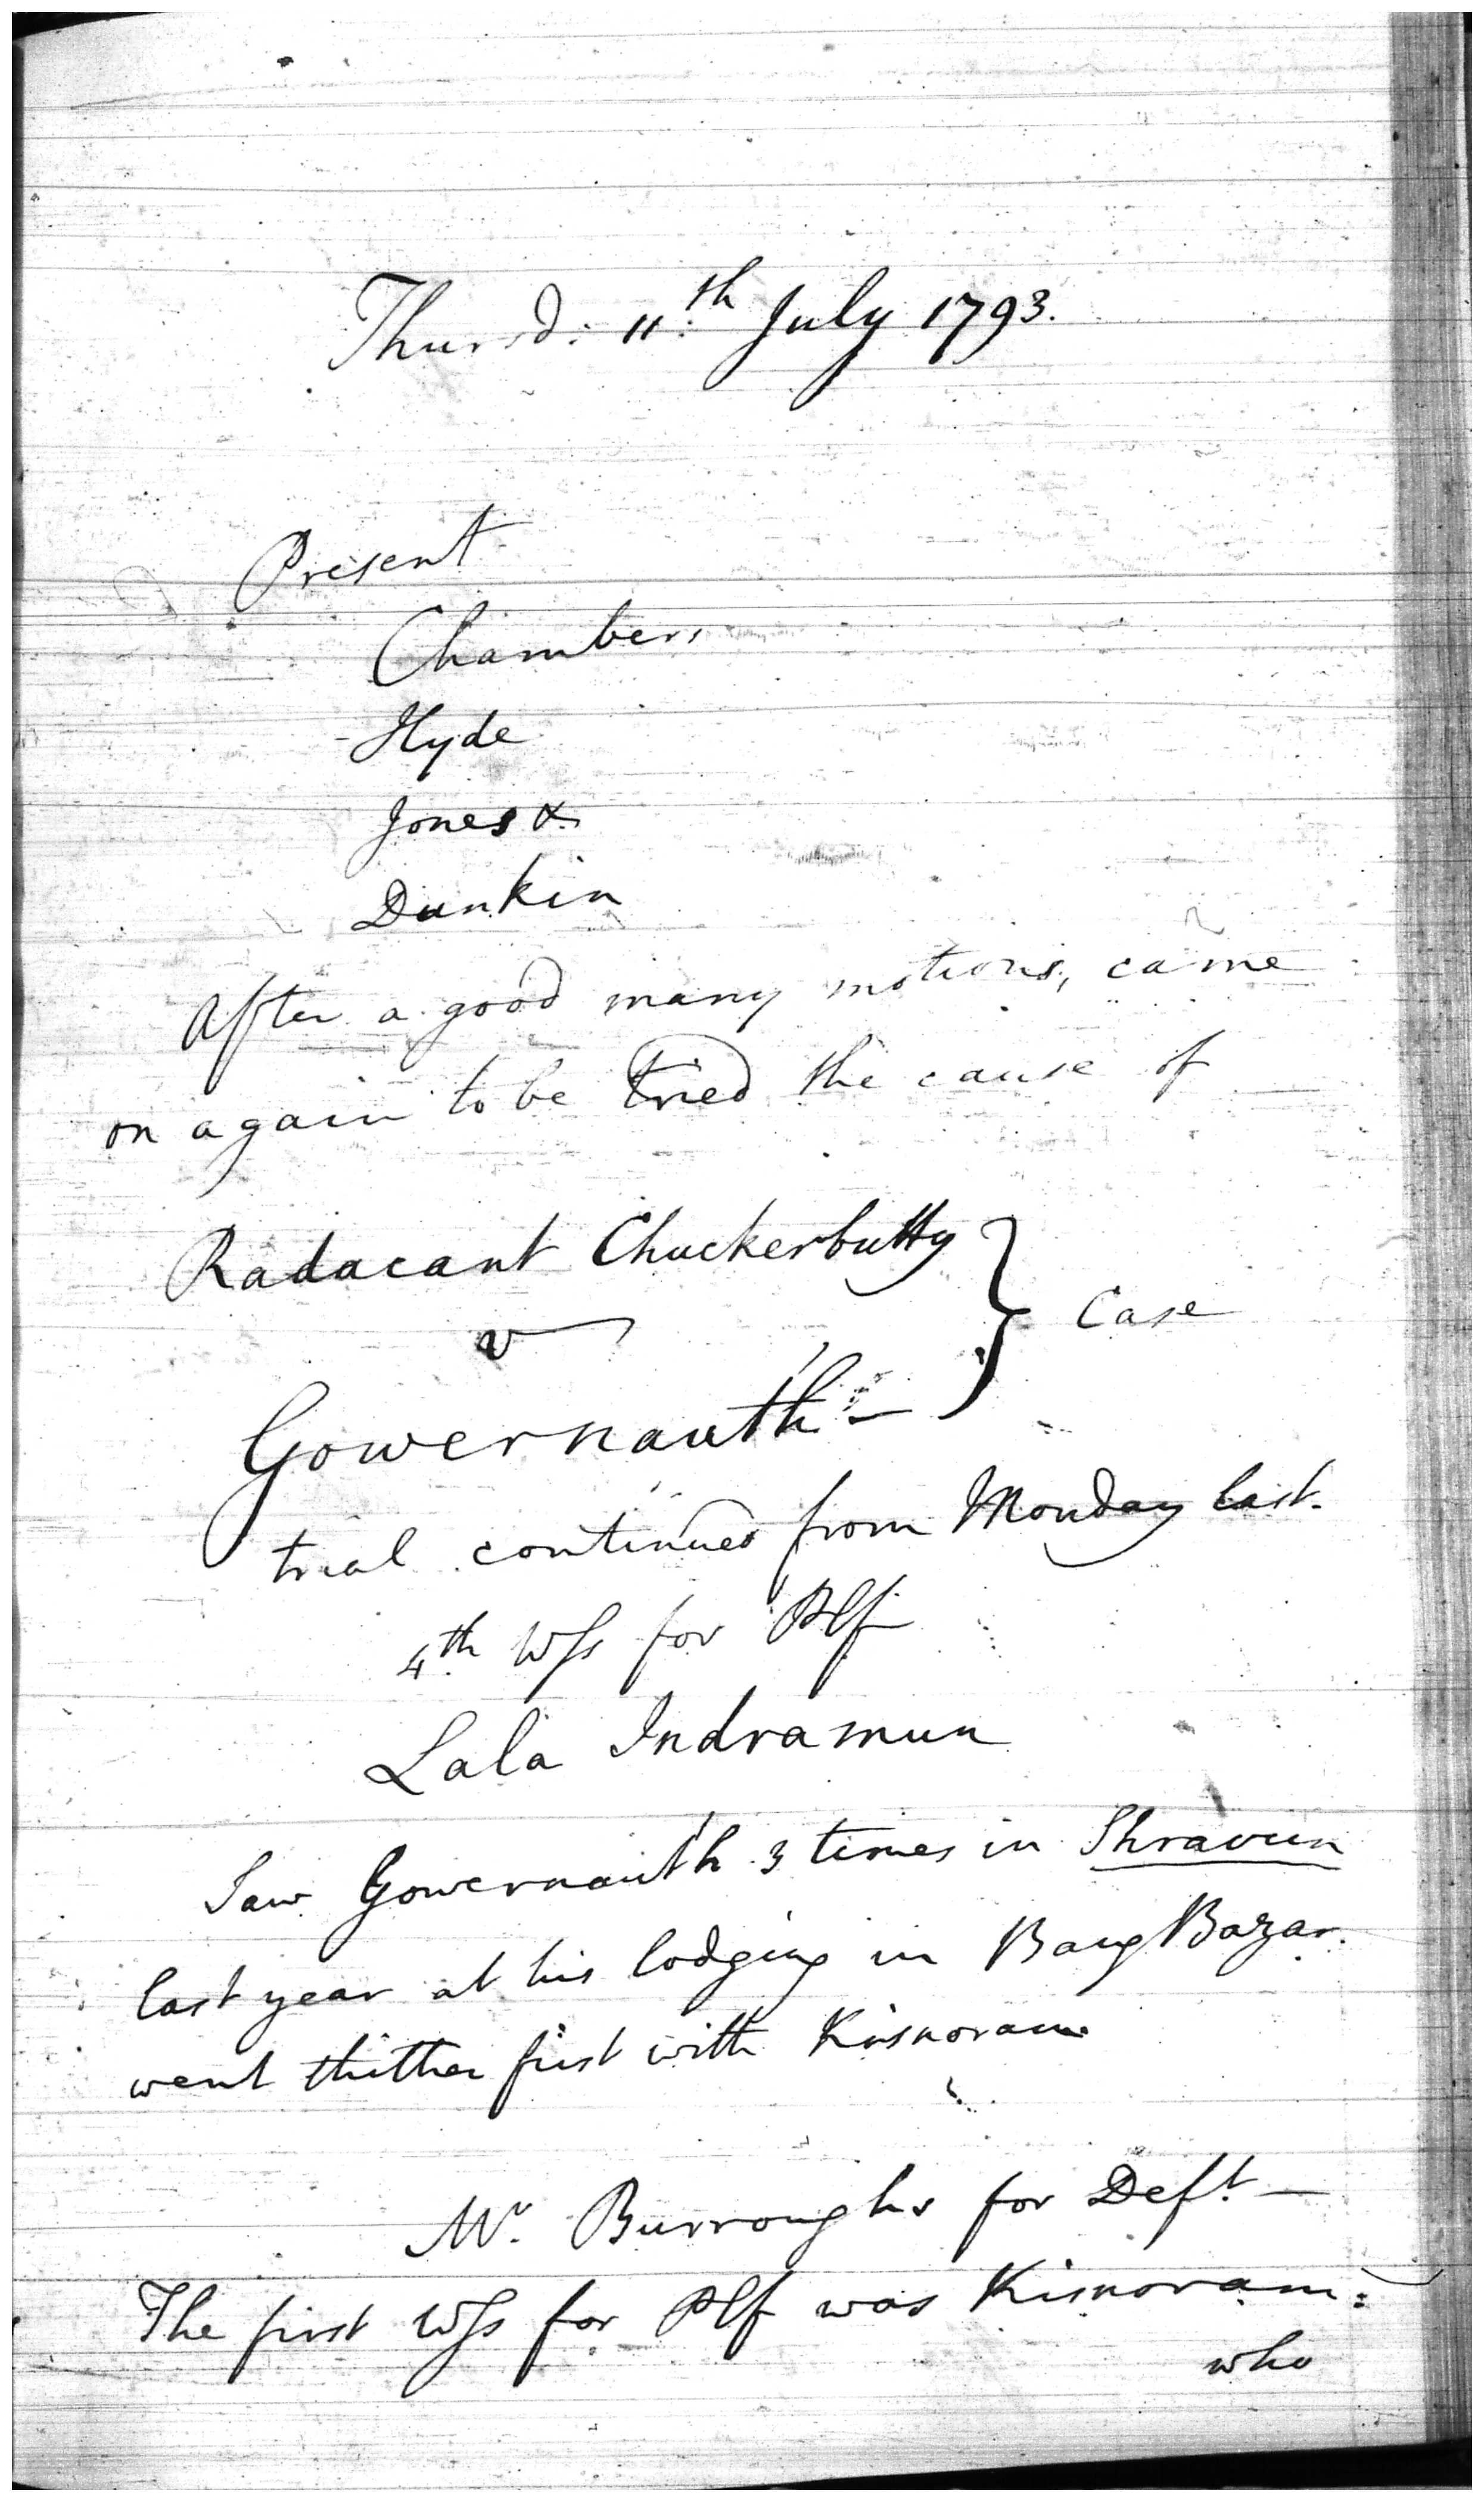 Thursd: 11.th July 1793.
Present
Chambers
Hyde
Jones &
Dunkin
After a good many motions, came
on again to be tried the cause of
Radacant Chuckerbutty
v
Case
Gowernauth
trial continued from Monday last.
4th Wss for Plf
Lala Indramun
Saw Gowernauth 3 times in Shravun
last year at his lodging in Baug Bazar.
went thither first with Kisnoram
Mr. Burroughs for Deft. —
The first Wss for Plf was Kisnoram:
who